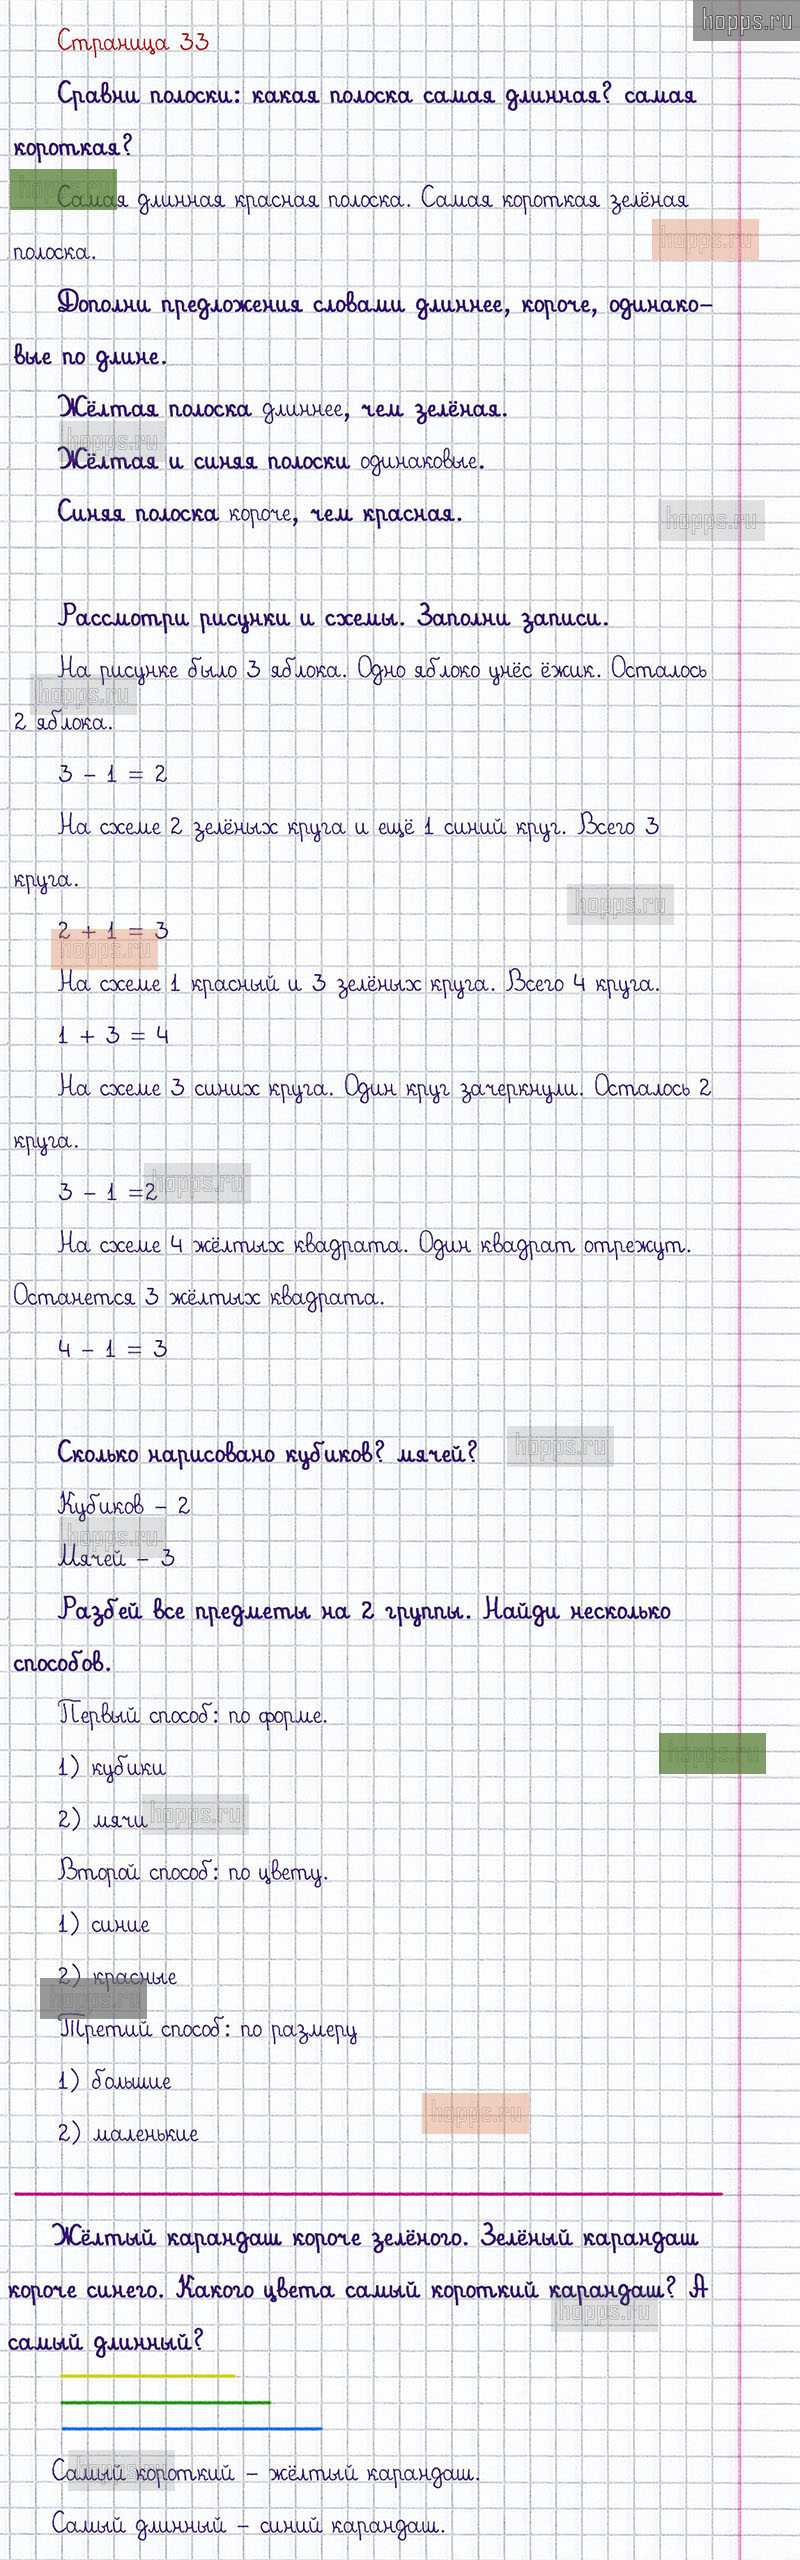 hopps.ru
Страница 33
Сравни полоски: какая полоска самая длинная? самая
короткая?
hopps.ru
Самая длинная красная полоска. Самая короткая зелёная
hopps.ru
полоска.
Дополни предложения словами длиннее, короче, одинако-
вые по длине.
Жёлтая полоска длиннее, чем зелёная.
hopps.ru
Жёлтая и синяя полоски одинаковые.
Синяя полоска короче, чем красная.
hopps.ru
Рассмотри рисунки и схемы. Заполни записи.
На рисунке было 3 яблока. Одно яблоко унёс ёжик. Осталось
hopps.ru
2 яблока.
3 - 1 = 2
На схеме 2 зелёных круга и ещё 1 синий круг. Всего 3
круга.
hopps.ru
2 + 1 = 3
hopps.ru
На схеме 1 красный и 3 зелёных круга. Всего 4 круга.
1 + 3 = 4
На схеме 3 синих круга. Один круг зачеркнули. Осталось 2
круга.
3 - 1 =2
hopps.ru
На схеме 4 жёлтых квадрата. Один квадрат отрежут.
Останется 3 жёлтых квадрата.
4 - 1 = 3
Сколько нарисовано кубиков? мячей?
hopps.ru
Кубиков - 2
hopps.ru
Мячей - 3
Разбей все предметы на 2 группы. Найди несколько
способов.
Первый способ: по форме.
hopps.ru
1) кубики
2) мячи
hopps.ru
Второй способ: по цвету.
1) синие
2) красные
hopps.ru
Третий способ: по размеру
1) большие
hopps.ru
2) маленькие
Жёлтый карандаш короче зелёного. Зелёный карандаш
короче синего. Какого цвета самый короткий карандаш? А
hopps.ru
самый длинный?
hopps.ru
Самый короткий - жёлтый карандаш.
Самый длинный - синий карандаш.